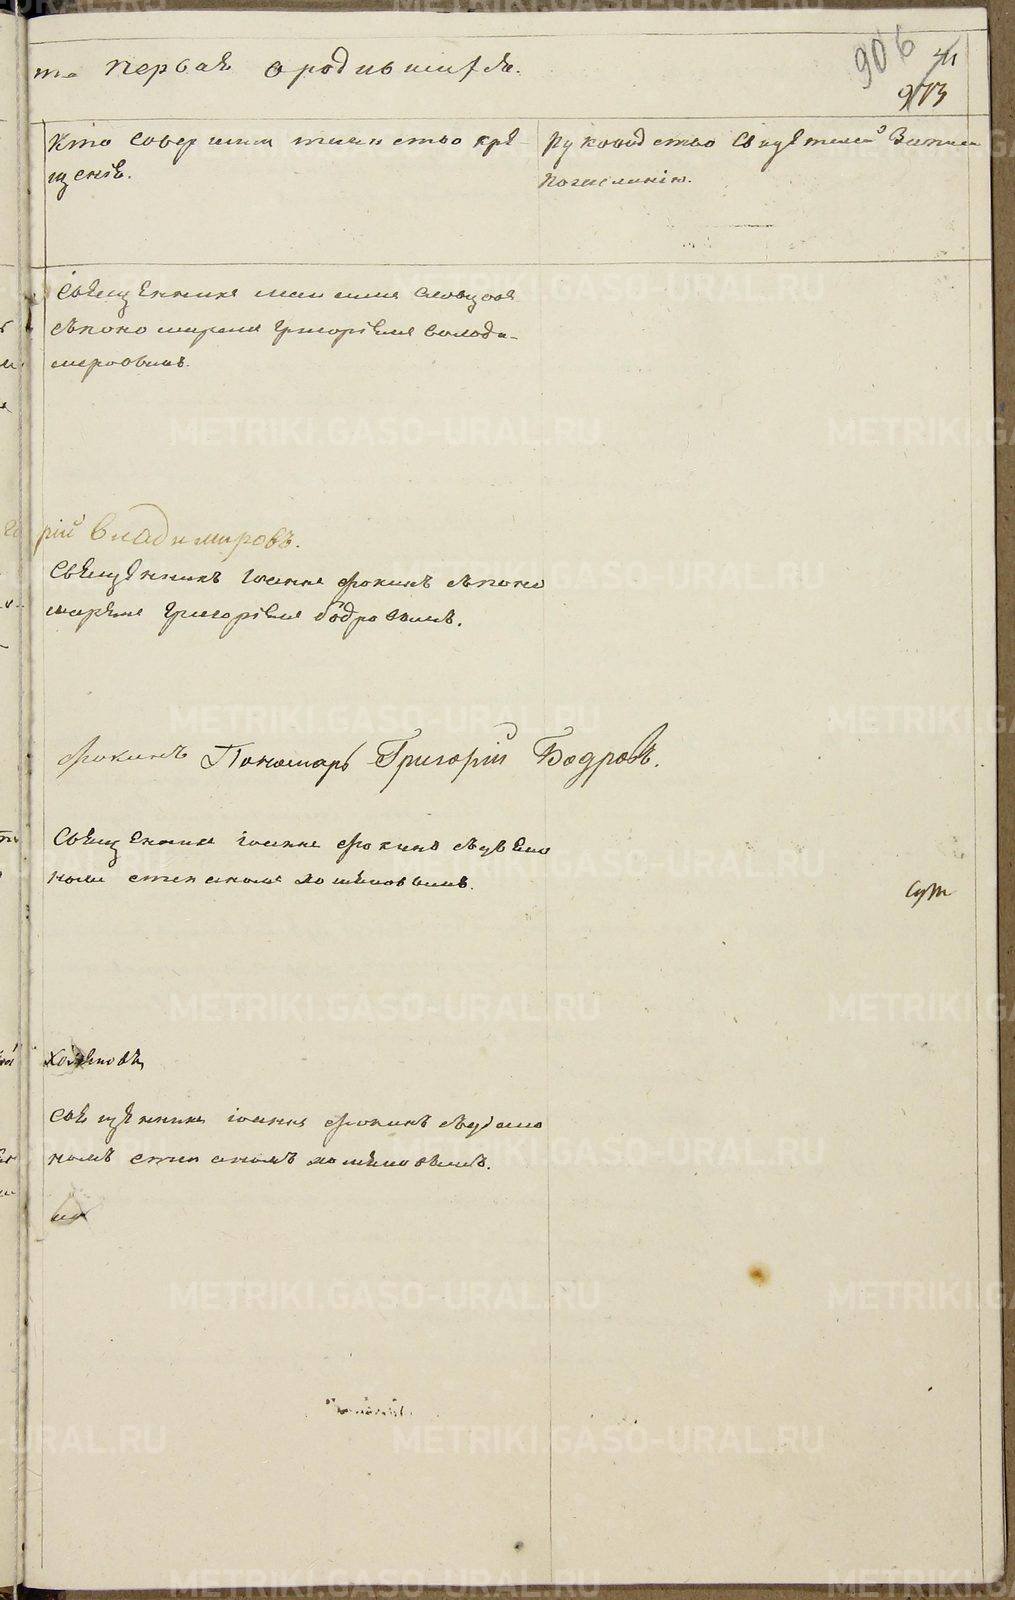 та первая о родившихся.
906
973
Кто совершил таинство кре-
щенiя.
Рукоприкладство свидетелей записи
по желанiю.
Священникъ Словцовъ
с пономаремъ Григорiемъ Володи-
меровымъ.
рiй Владимировъ.
Священникъ Iоаннъ Фокинъ с поно
маремъ Григорiемъ Бодровымъ.
Фокинъ Пономарь Григорiй Бодровъ.
Священникъ Iоаннъ Фокинъ
Степаномъ Хомяковымъ.
Хомяковъ
Священникъ Iоаннъ Фокинъ
номъ Степаномъ Хомяковымъ.
METRIKI.GASO-URAL.RU